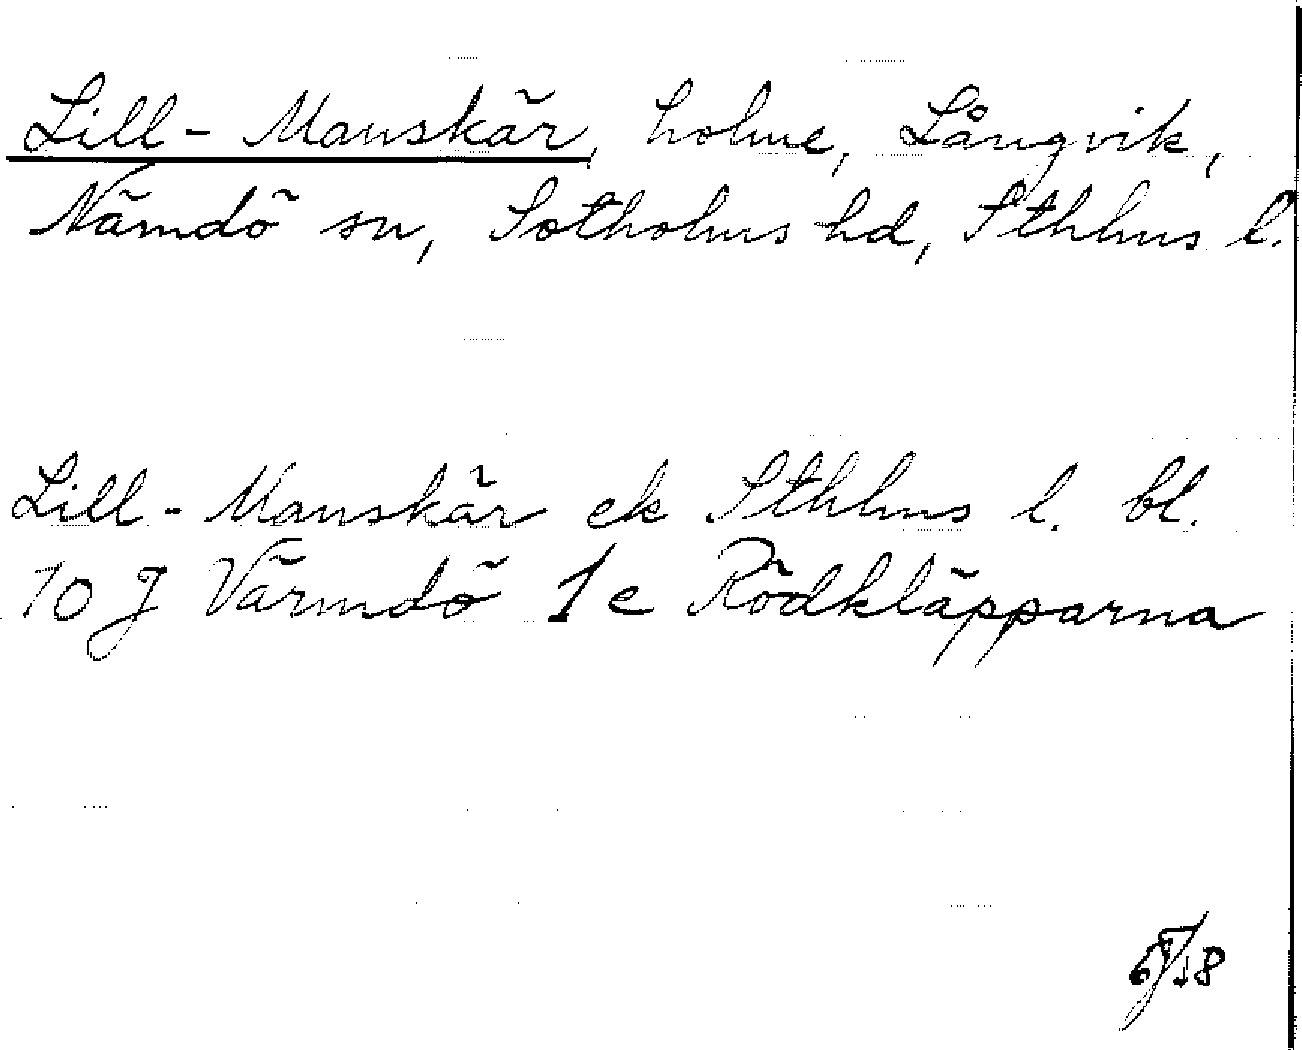 Lill-Manskär, holme, Långvik,
Nämdö sn, Sotholms hd, Sthlms l.
Lill-Manskär ek Sthlms l. bl.
10J Värmdö 1e Rödkläpparna